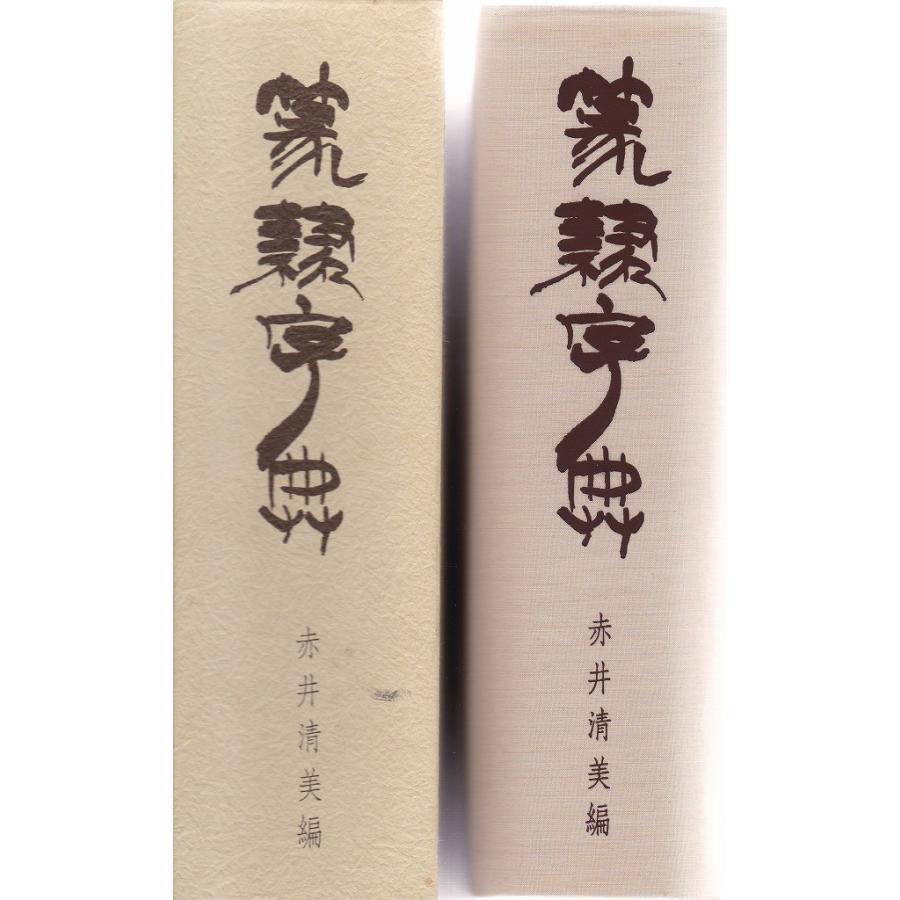 篆隷字典
赤井清美編
篆隷字典
赤井清美編